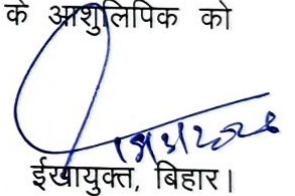 के आशुलिपिक को
ईखायुक्त, बिहार।